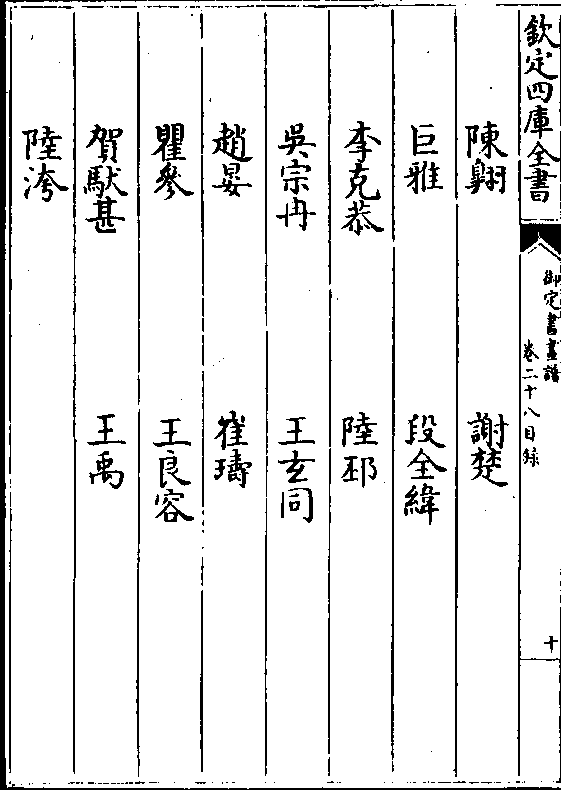 欽定四庫全書
御定書畫譜
卷二十八目録
十
陳翺 謝楚
巨雅 段全緯
李克恭 陸邳
吳宗冉 王玄同
趙晏 崔璹
瞿參 王良容
賀猒甚 王禹
陸洿